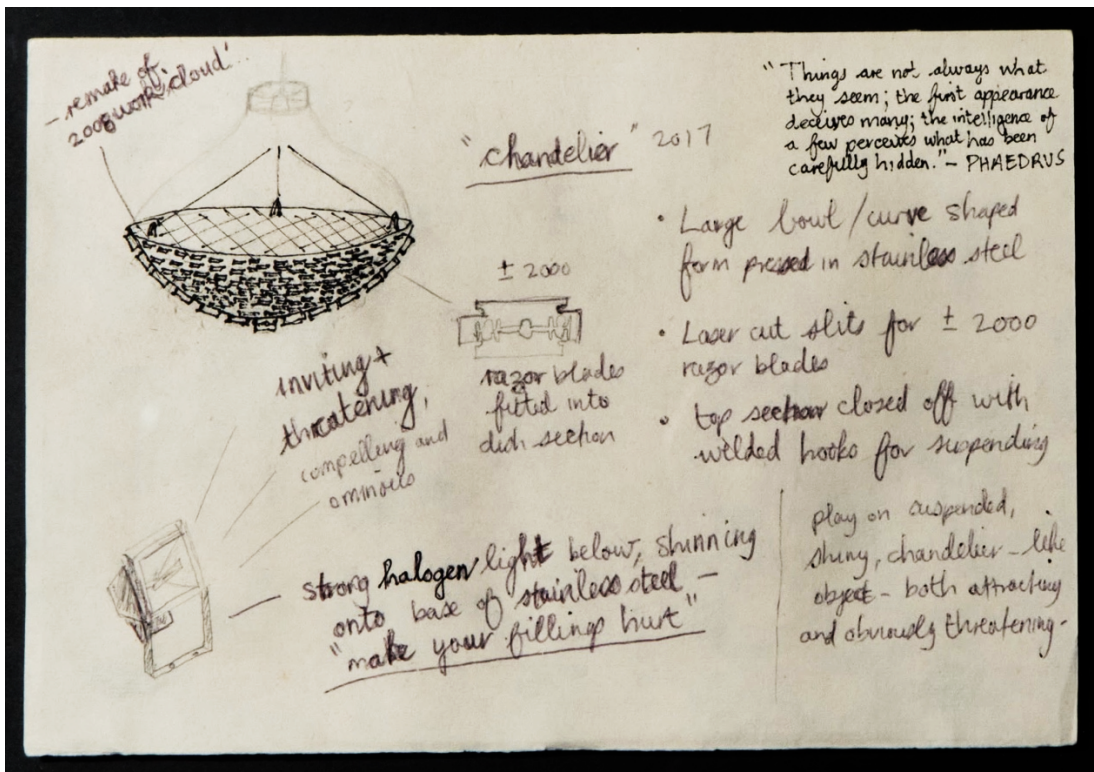 - remake of
2008 work 'cloud'..
"chandelier" 2017
"Things are not always what
they seem; the first appearance
deceives many; the intelligence of
a few perceives what has been
carefully hidden." - PHAEDRUS
• Large bowl/curve shaped
form pressed in stainless steel
• Laser cut slits for ± 2000
razor blades
• top section closed off with
welded hooks for suspending
± 2000
razor blades
fitted into
dish section
inviting +
threatening,
compelling and
ominous
strong halogen light below, shinning
onto base of stainless steel -
"make your fillings hurt"
play on suspended,
shiny, chandelier - like
object - both attracting
and obviously threatening -